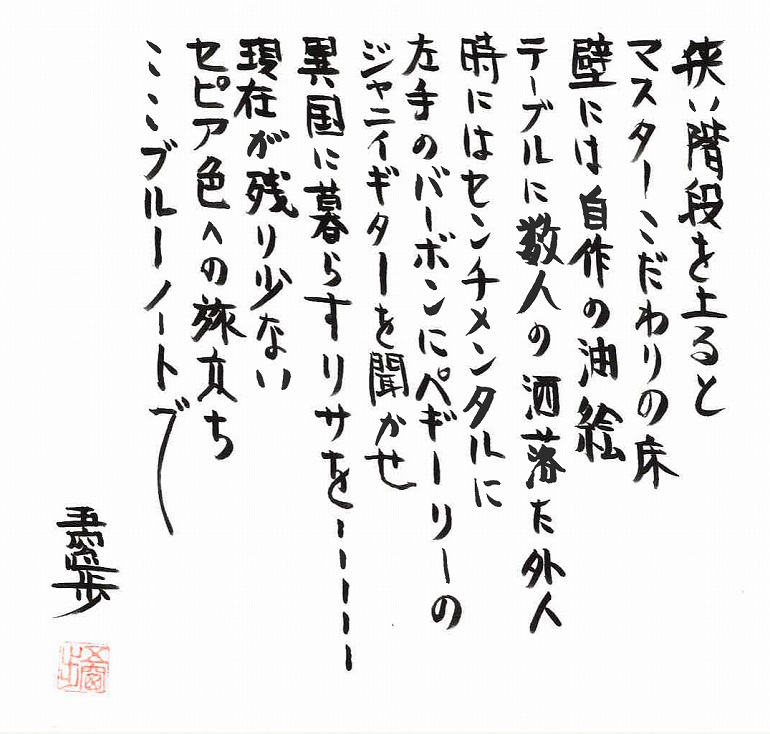 狭い階段を上ると
マスターこだわりの床
壁には自作の油絵
テーブルに数人の洒落た外人
時にはセンチメンタルに
左手のバーボンにペギーリーの
ジャニイギターを聞かせ
異国に暮らすリサを－－－－
現在が残り少ない
セピア色への旅立ち
ミミブルーノートで